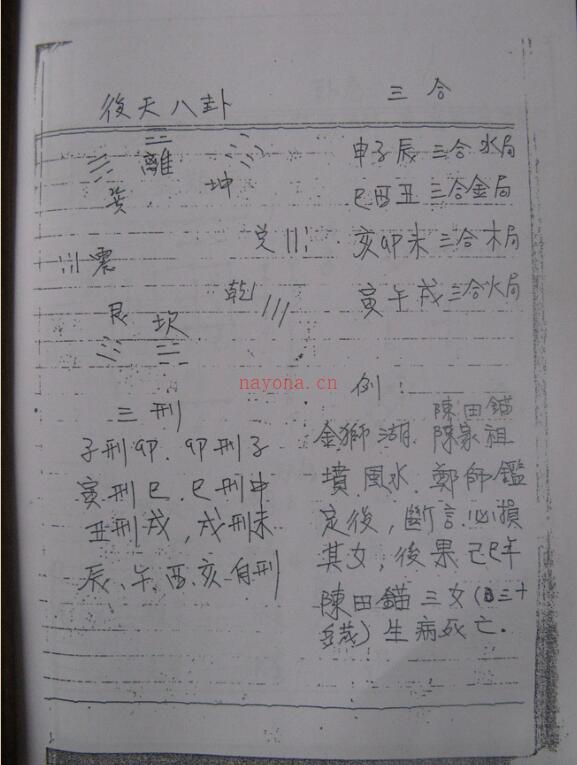 後天八卦
離
巽
坤
兑
震
乾
艮 坎
三刑
子刑卯、卯刑子
寅刑巳、巳刑申
丑刑戌，戌刑未
辰、午、酉、亥自刑
三合
申子辰 三合水局
巳酉丑 三合金局
亥卯未 三合木局
寅午戌 三合火局
nayona.cn
例：
陳田錨
金獅湖、陳家祖
墳風水、鄭師鑑
定後，斷言必損
其女，後果己巳年
陳田錨三女（三十
多歲）生病死亡.